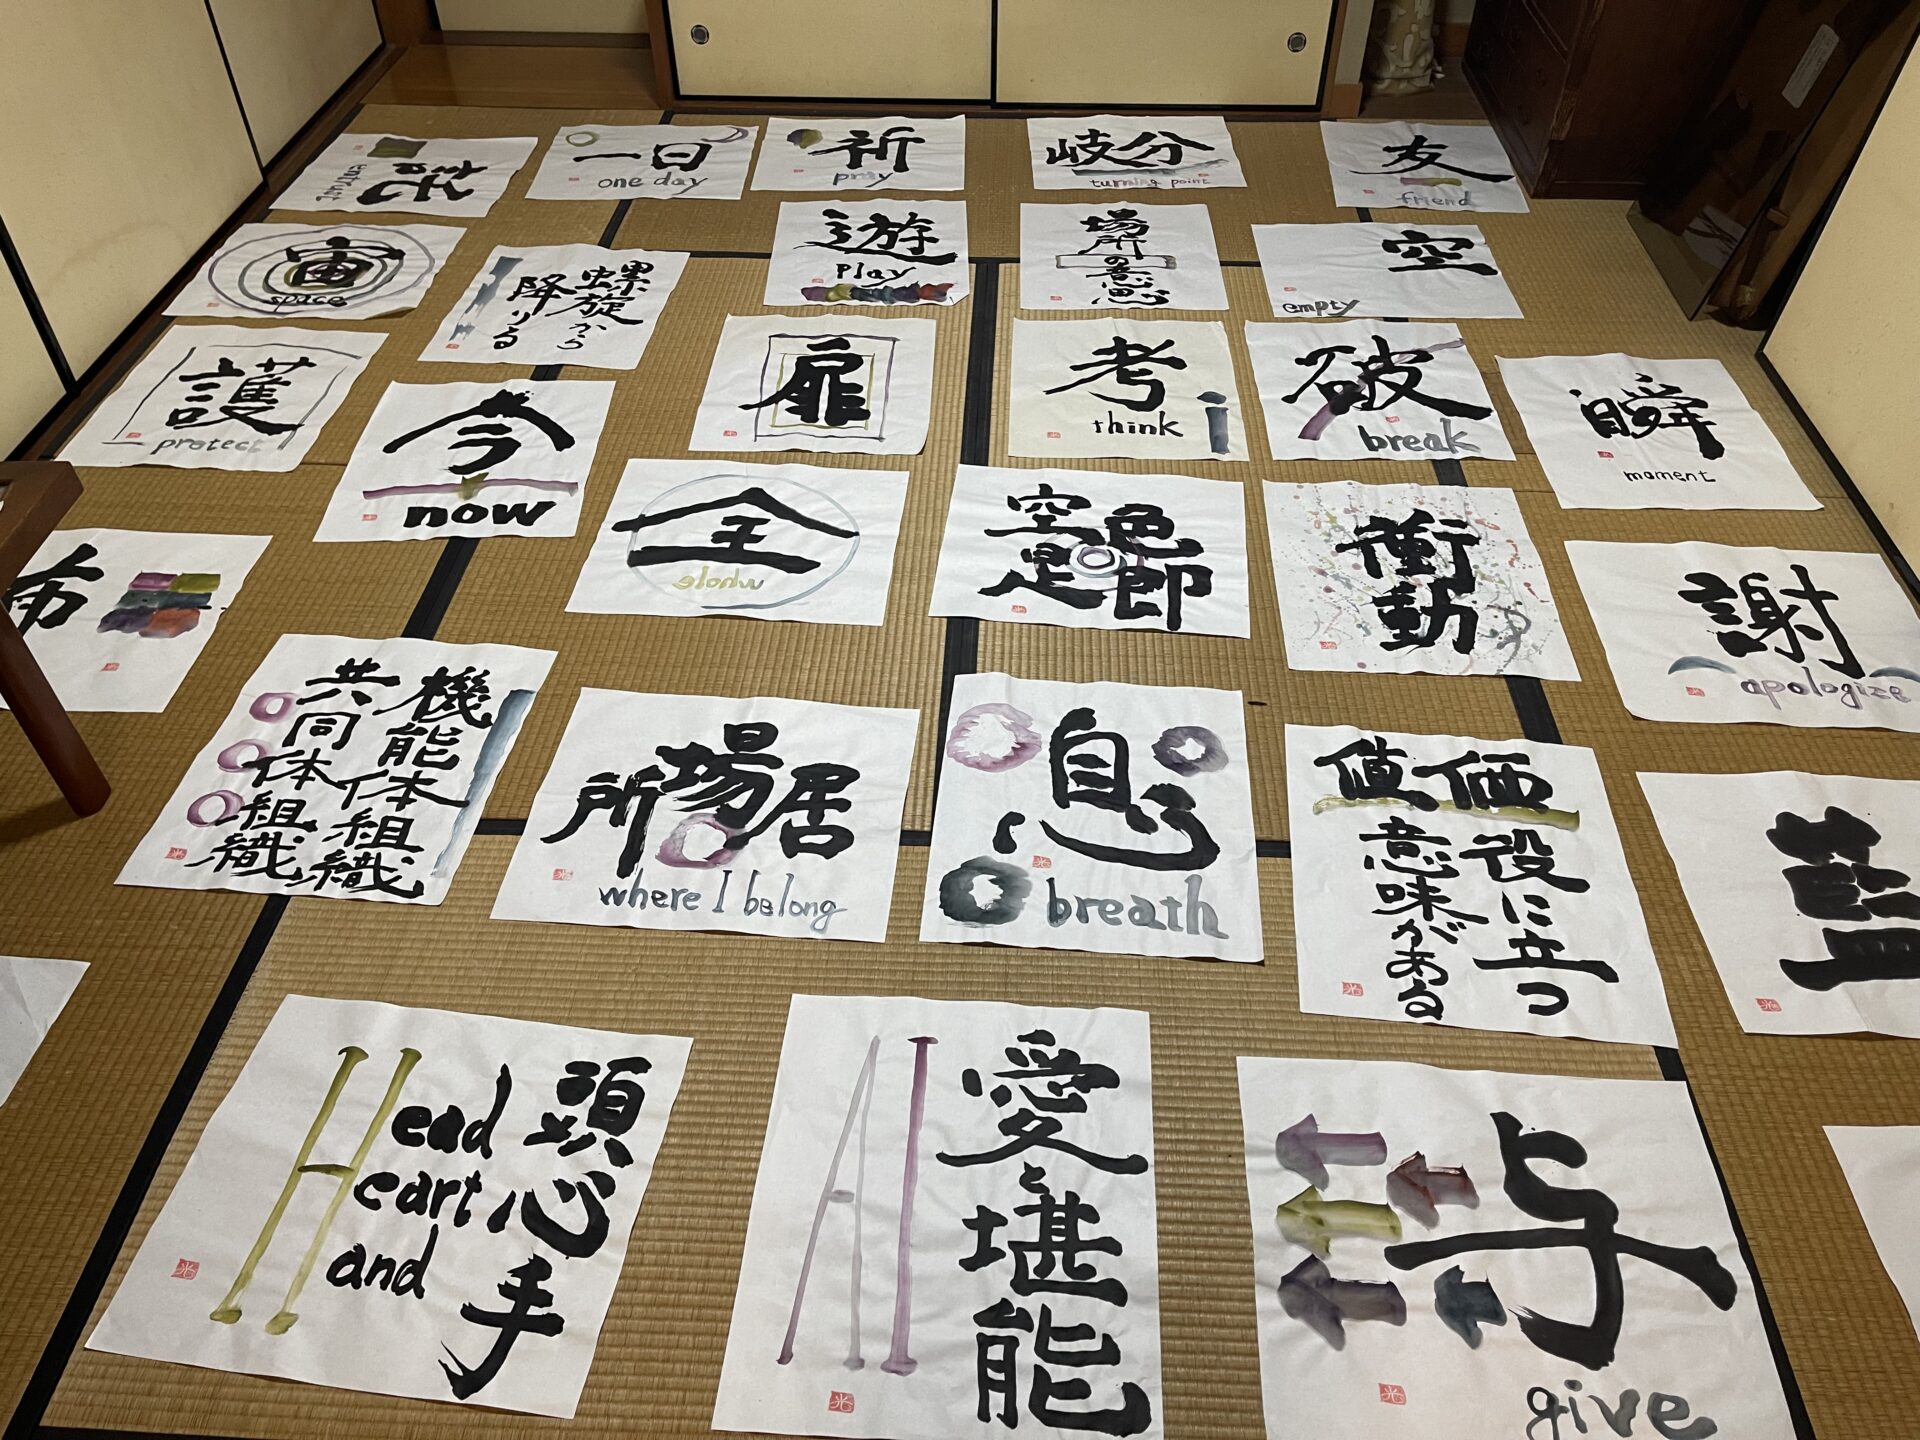 託
entrust
一日
one day
祈
pray
岐分
turning point
友
friend
宙
space
螺旋から
降りる
遊
play
場所
の意思
空
empty
護
protect
今
now
扉
考
think
破
break
瞬
moment
布
全
whole
色即
是空
衝動
謝
apologize
機能体組織
共同体組織
居場所
where I belong
息
breath
価値
役に立つ
意味がある
頭
心
手
Head
Heart
Hand
AI
愛と堪能
与
give
光